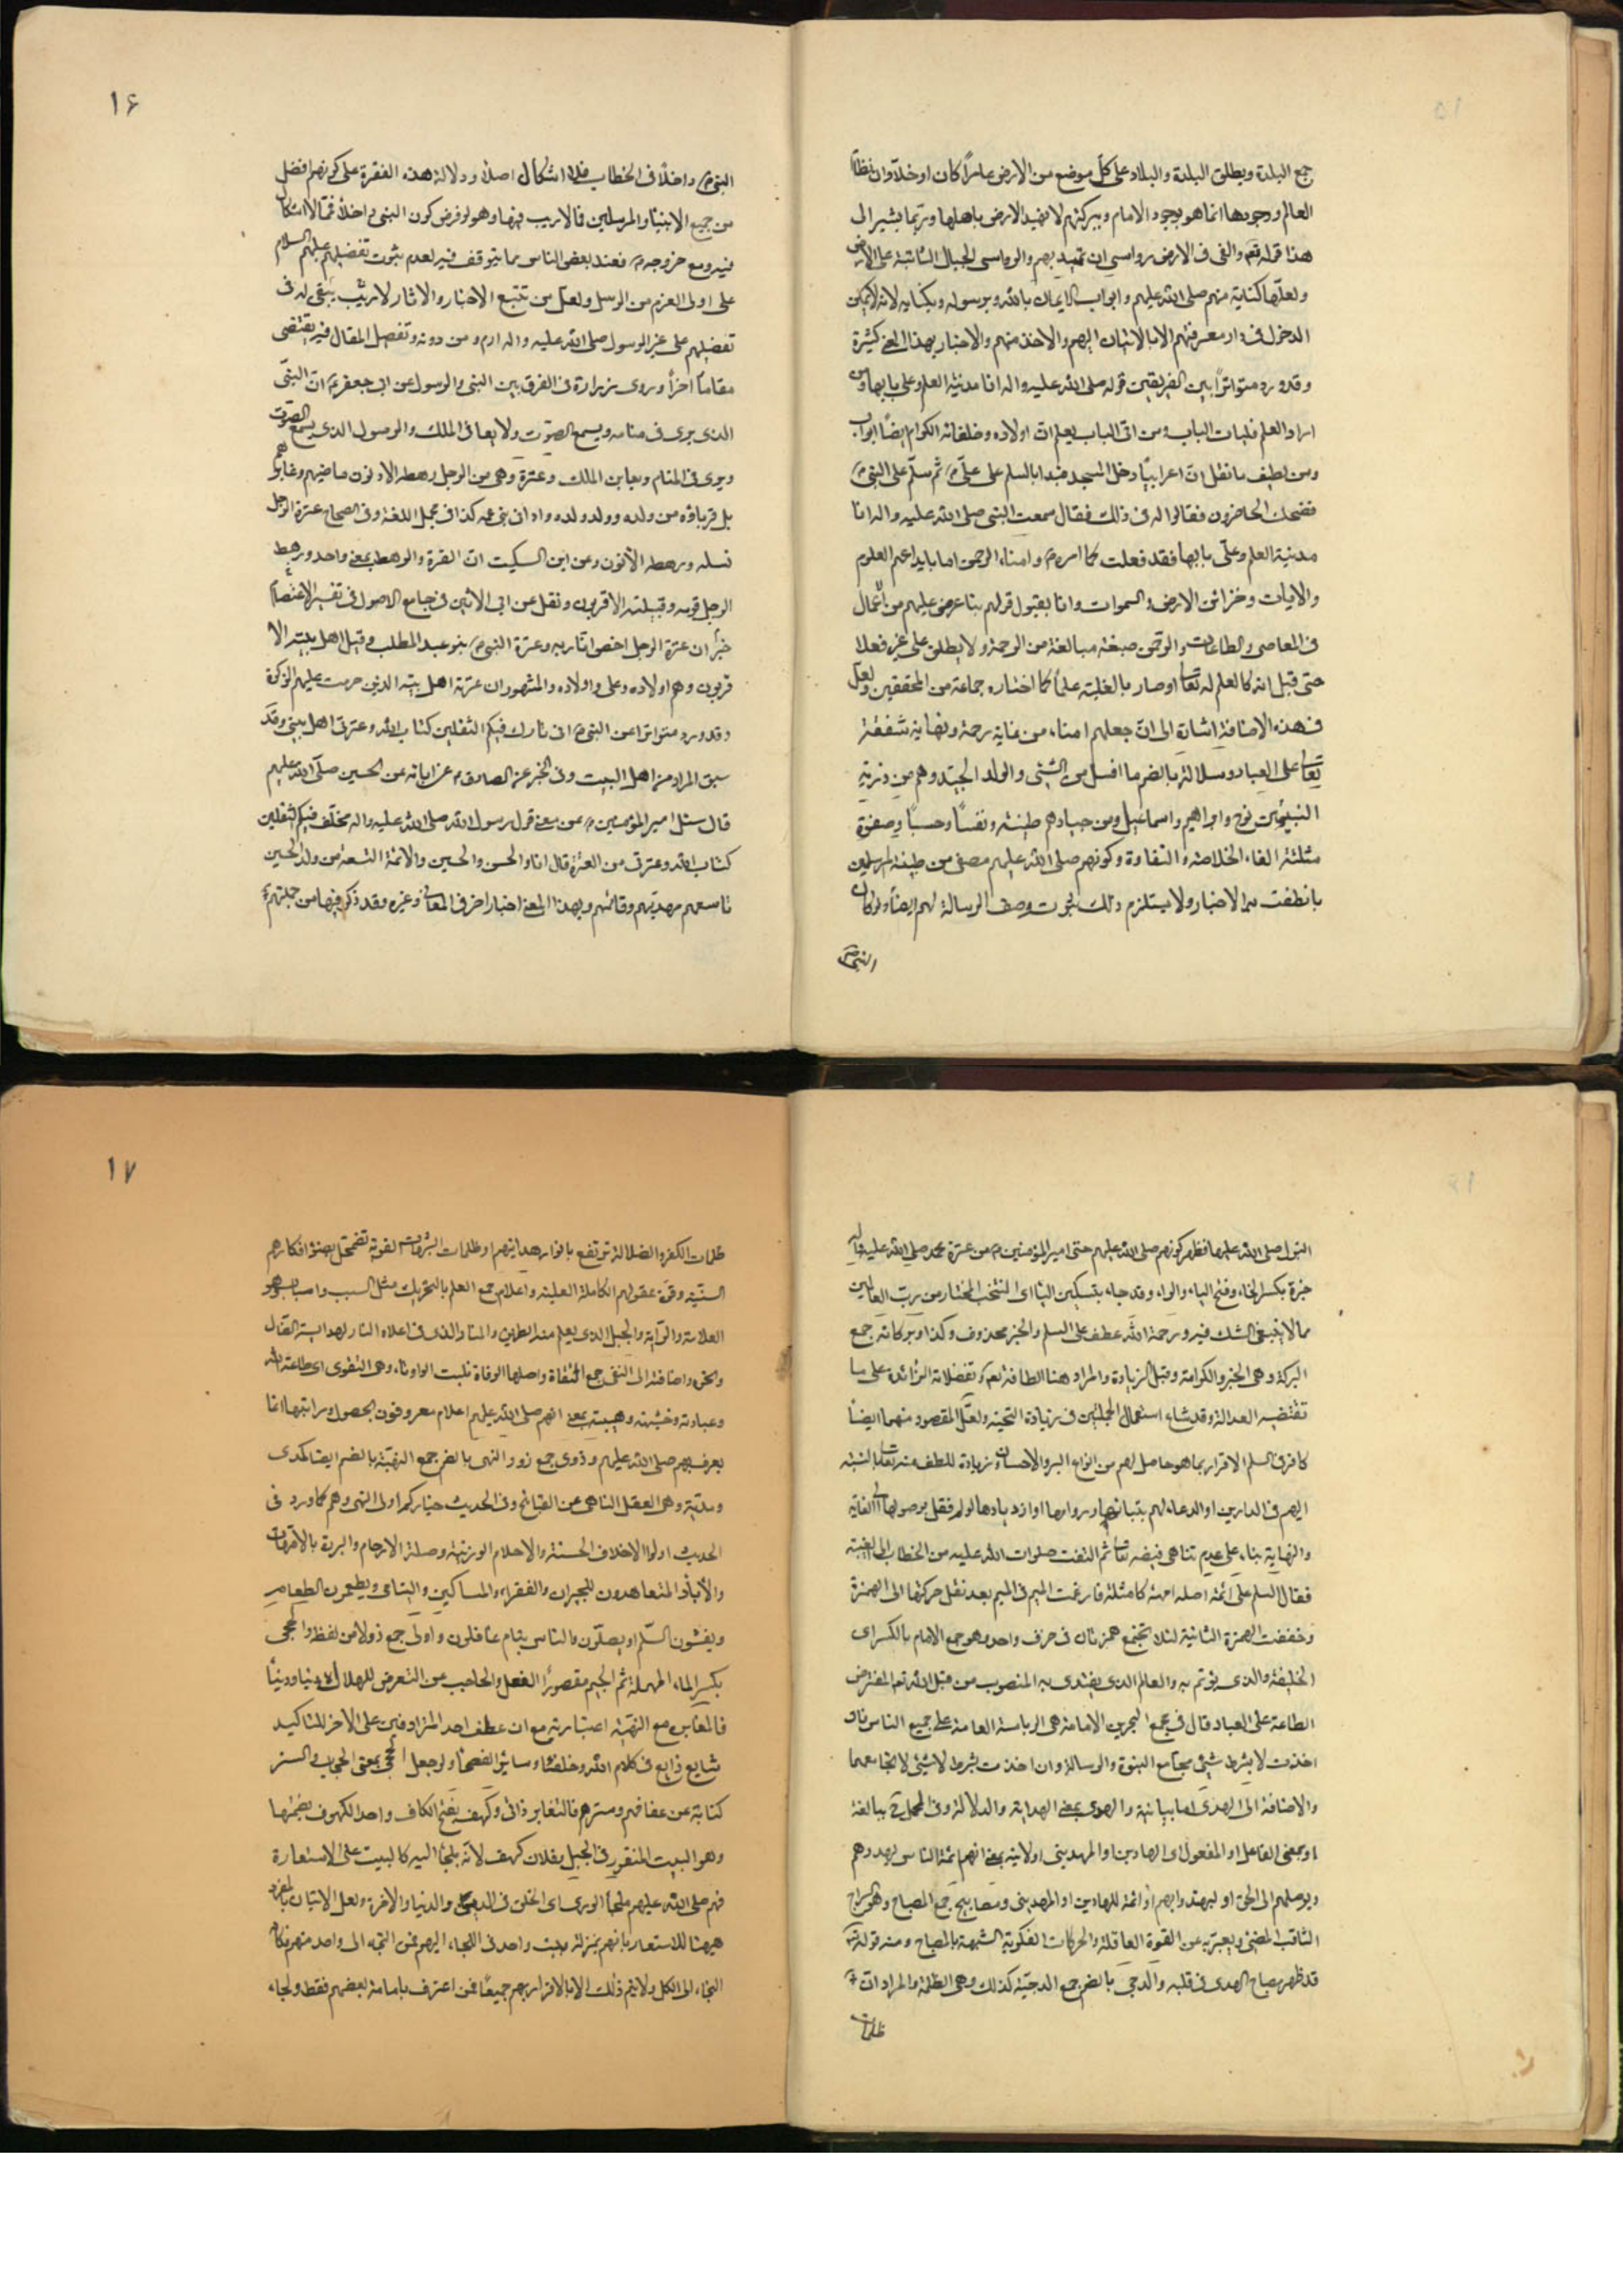 جمع البلدة ويطلق البلدة والبلاد على كل موضع من الارض عامرا كان او خلا وان نظام
العالم ووجودها انما هو بوجود الامام وببركتهم لا تميد الارض باهلها وربما يشير الى
هذا قوله تعه والقى فى الارض رواسى ان تميد بهم والرواسى الجبال الثابتة على الارض
ولعلها كناية منهم صلى الله عليهم وابواب الايمان بالله وبرسوله وبكتابه لانه لا يمكن
الدخول فى دار معرفتهم الا بالاتيان اليهم والاخذ منهم والاخبار بهذا المعنى كثيرة
وقد ورد متواترا بين الفريقين قوله صلى الله عليه واله انا مدينة العلم وعلى بابها ومن
اراد العلم فليات الباب ومن اتى الباب يعلم ان اولاده وخلفائه الكرام ايضا ابواب
ومن لطيف ما نقل ان اعرابيا دخل المسجد فبدا بالسلم على علىّ م ثم سلم على النبى م
فضحك الحاضرون فقالوا له فى ذلك فقال سمعت النبى صلى الله عليه واله انا
مدينة العلم وعلى بابها فقد فعلت كما امر م وامناء الرحمن
والايات وخزائن الارض والسموات
فى المعاصى والطاعات والرحمن صيغة مبالغة من الرحمة ولا يطلق على غيره فعلا
حتى قيل انه كالعلم له تعالى او صار بالغلبة علما كما اختاره جماعة من المحققين ولعل
فى هذه الاضافة اشارة الى ان جعلهم امناء من غاية رحمة ونهاية شفقة
تعالى على العباد وسلالة بالضم ما انسل من الشىء والولد الجيد وهم من ذرية
النبيين نوح وابراهيم واسماعيل ومن جيادهم طينة ونفسا وحسبا وصفوة
مثلثة الفاء الخلاصة والنقاوة وكونهم صلى الله عليهم مصفى من طينة المرسلين
ما نطقت به الاخبار ولا يستلزم ذلك ثبوت وصف الرسالة لهم ايضا ولو كان
النبى ص
١۶
النبى م داخلا فى الخطاب فلا اشكال اصلا ودلالة هذه الفقرة على كونهم افضل
من جميع الانبياء والمرسلين فالاريب فيها وهو لو فرض كون النبى م داخلا فمما لا اشكال
فيه ومع خروجه م فعند بعض الناس مما يتوقف فيه لعدم ثبوت تفضيلهم عليهم السلام
على اولى العزم من الرسل ولعل من تتبع الاخبار والاثار لا ريب يبقى له فى
تفضيلهم على غير الرسول صلى الله عليه واله ادم و من دونه وتفصيل المقال فيه يقتضى
مقاما اخرا وروى زرارة فى الفرق بين النبى والرسول عن ابى جعفر م ان النبى
الذى يرى فى منامه ويسمع الصوت ولا يعاين الملك والرسول الذى يسمع الصوت
ويرى فى المنام ويعاين الملك وعترة وهى من الرجل رهطه الادنون ماضيهم وغابرهم
بل قرباؤه من ولده وولد ولده وادانى بنى عمه كذا فى مجمل اللغة وفى الصحاح عترة الرجل
نسله ورهطه الادنون وعن ابن السكيت ان العترة والرهط بمعنى واحد ورهط
الرجل قومه وقبيلته الاقربون ونقل عن ابن الاثير فى جامع الاصول فى تفسير الاعتصام
خبرا ان عترة الرجل اخص اقاربه وعترة النبى م بنو عبد المطلب وقيل اهل بيته الا
قربون وهم اولاده وعلى واولاده والمشهور ان عترته اهل بيته الذين حرمت عليهم الزكوة
وقد ورد متواترا عن النبى م انى تارك فيكم الثقلين كتاب الله وعترتى اهل بيتى وقد
سبق المراد من اهل البيت وفى الخبر عن الصادق م عن اباىه عن الحسين صلى الله عليهم
قال سئل امير المؤمنين م عن معنى قول رسول الله صلى الله عليه واله مخلف فيكم الثقلين
كتاب الله وعترتى من العترة قال انا والحسن والحسين والائمة التسعة من ولد الحسين
تاسعهم مهديهم وقائمهم وبهذا المعنى اخبار اخر فى المعانى وغيره وقد ذكر فيها من جملتهم
البتول صلى الله عليها فظهر كونهم صلى الله عليهم حتى امير المؤمنين م من عترة محمد صلى الله عليه واله
خيرة بكسر الخاء وفتح الياء والراء وقد جاء بتسكين الياء اى المنتخب المختار من رب العالمين
مما لا ينبغى الشك فيه ورحمة الله عطف على السلم والخبر محذوف وكذا وبركاته جمع
البركة وهى الخير والكرامة وقيل الزيادة والمراد هنا الطافة تعه وتفضلاته الزائدة على ما
تقتضيه العدالة وقد شاع استعمال الجملتين فى زيادة التحية ولعل المقصود منهما ايضا
كما فى السلم الاقرار بما هو حاصل لهم من انواع البر والاحسان وزيادة اللطف منه تعالى بالنسبة
اليهم فى الدارين او الدعاء لهم بثباتها ودوامها او ازديادها
والنهاية بناء على عدم تناهى فيضه تعالى ثم التفت صلوات الله عليه من الخطاب الى الغيبة
فقال السلم على ائمة اصله اممة كامثلة فادغمت الميم فى الميم بعد نقل حركتها الى الهمزة
وخففت الهمزة الثانية لئلا تجتمع همزتان فى حرف واحد وهو جمع الامام بالكسر اى
الخليفة والذى يؤتم به والعالم الذى يقتدى به المنصوب من قبل الله تعه المفترض
الطاعة على العباد قال فى مجمع البحرين الامامة هى الرياسة العامة على جميع الناس فاذا
اخذت لا بشرط شىء تجامع النبوة والرسالة وان اخذت بشرط لا شىء لا تجامعهما
والاضافة الى الهدى اما بيانية والهدى بمعنى الهداية والدلالة وفى الحمل مبالغة
او بمعنى الفاعل او المفعول اى الهادين او المهديين او لامية بمعنى انهم ائمة الناس لهدوهم
ويوصلهم الى الحق او ليهتدوا بهم او ائمة للهادين او المهديين ومصابيح جمع المصباح وهو السراج
الثاقب المضىء ويعبر به عن القوة العاقلة والحركات الفكرية الشبيهة بالمصباح ومنه قوله
قد ظهر مصباح الهدى فى قلبه والدجى بالضم جمع الدجية كذلك وهى الظلمة والمراد ان
ظلمات
١٧
ظلمات الكفر والضلالة ترتفع بانوار هدايتهم او ظلمات تضمحل بضوء افكارهم
السنية وقوة عقولهم الكاملة العلية واعلام جمع العلم بالتحريك مثل السبب واسباب وهو
العلامة والراية والجبل الذى يعلم منه الطريق والمنار الذى فى اعلاه النار لهداية الضال
واضافته الى التقى جمع التقاة واصلها الوقاة قلبت الواو تاء وهى التقوى اى طاعة الله
وعبادته وخشيته وهيبته بمعنى انهم صلى الله عليهم اعلام معروفون بحصول مراتبها
يعرف بهم صلى الله عليهم وذوى جمع ذو والنهى بالضم جمع النهية بالضم ايضا كمدى
ومدية وهى العقل الناهى عن القبائح وفى الحديث خياركم اولى النهى وهم كما ورد فى
الحديث اولوا الاخلاق الحسنة والاحلام الرزينة وصلة الارحام والبررة بالامهات
والأباء المتعاهدون للجيران والفقراء والمساكين واليتامى ويطعمون الطعام
ويفشون السلم ويصلون والناس نيام غافلون واولى جمع ذو لا من لفظه والحجى
بكسر الحاء المهملة ثم الجيم مقصورا العقل والحاجب عن التعرض للهلاك دنيا ودينا
فالتغاير مع النهية اعتبارية مع ان عطف احد المترادفين على الاخر للتاكيد
شايع ذايع فى كلام الله وخلفاء وسائر الفصحاء ولو جعل الحجى بمعنى الحجاب والستر
كناية عن عفافهم وسترهم فالتغاير ذاتى وكهف بفتح الكاف واحد الكهوف بضمها
وهو البيت المنقور فى الجبل يقال فلان كهف لانه يلجأ اليه كالبيت على الاستعارة
فهم صلى الله عليهم ملجأ الورى اى الخلق فى الدين والدنيا والاخرة ولعل الاتيان بالمفرد
هيهنا للاشعار بانهم بمنزلة بيت واحد فى اللجاء اليهم فمن التجه الى واحد منهم فكانه
التجاء الى الكل ولا يتم ذلك الا بالاقرار بهم جميعا فمن اعترف بامامة بعضهم فقط ولجاء